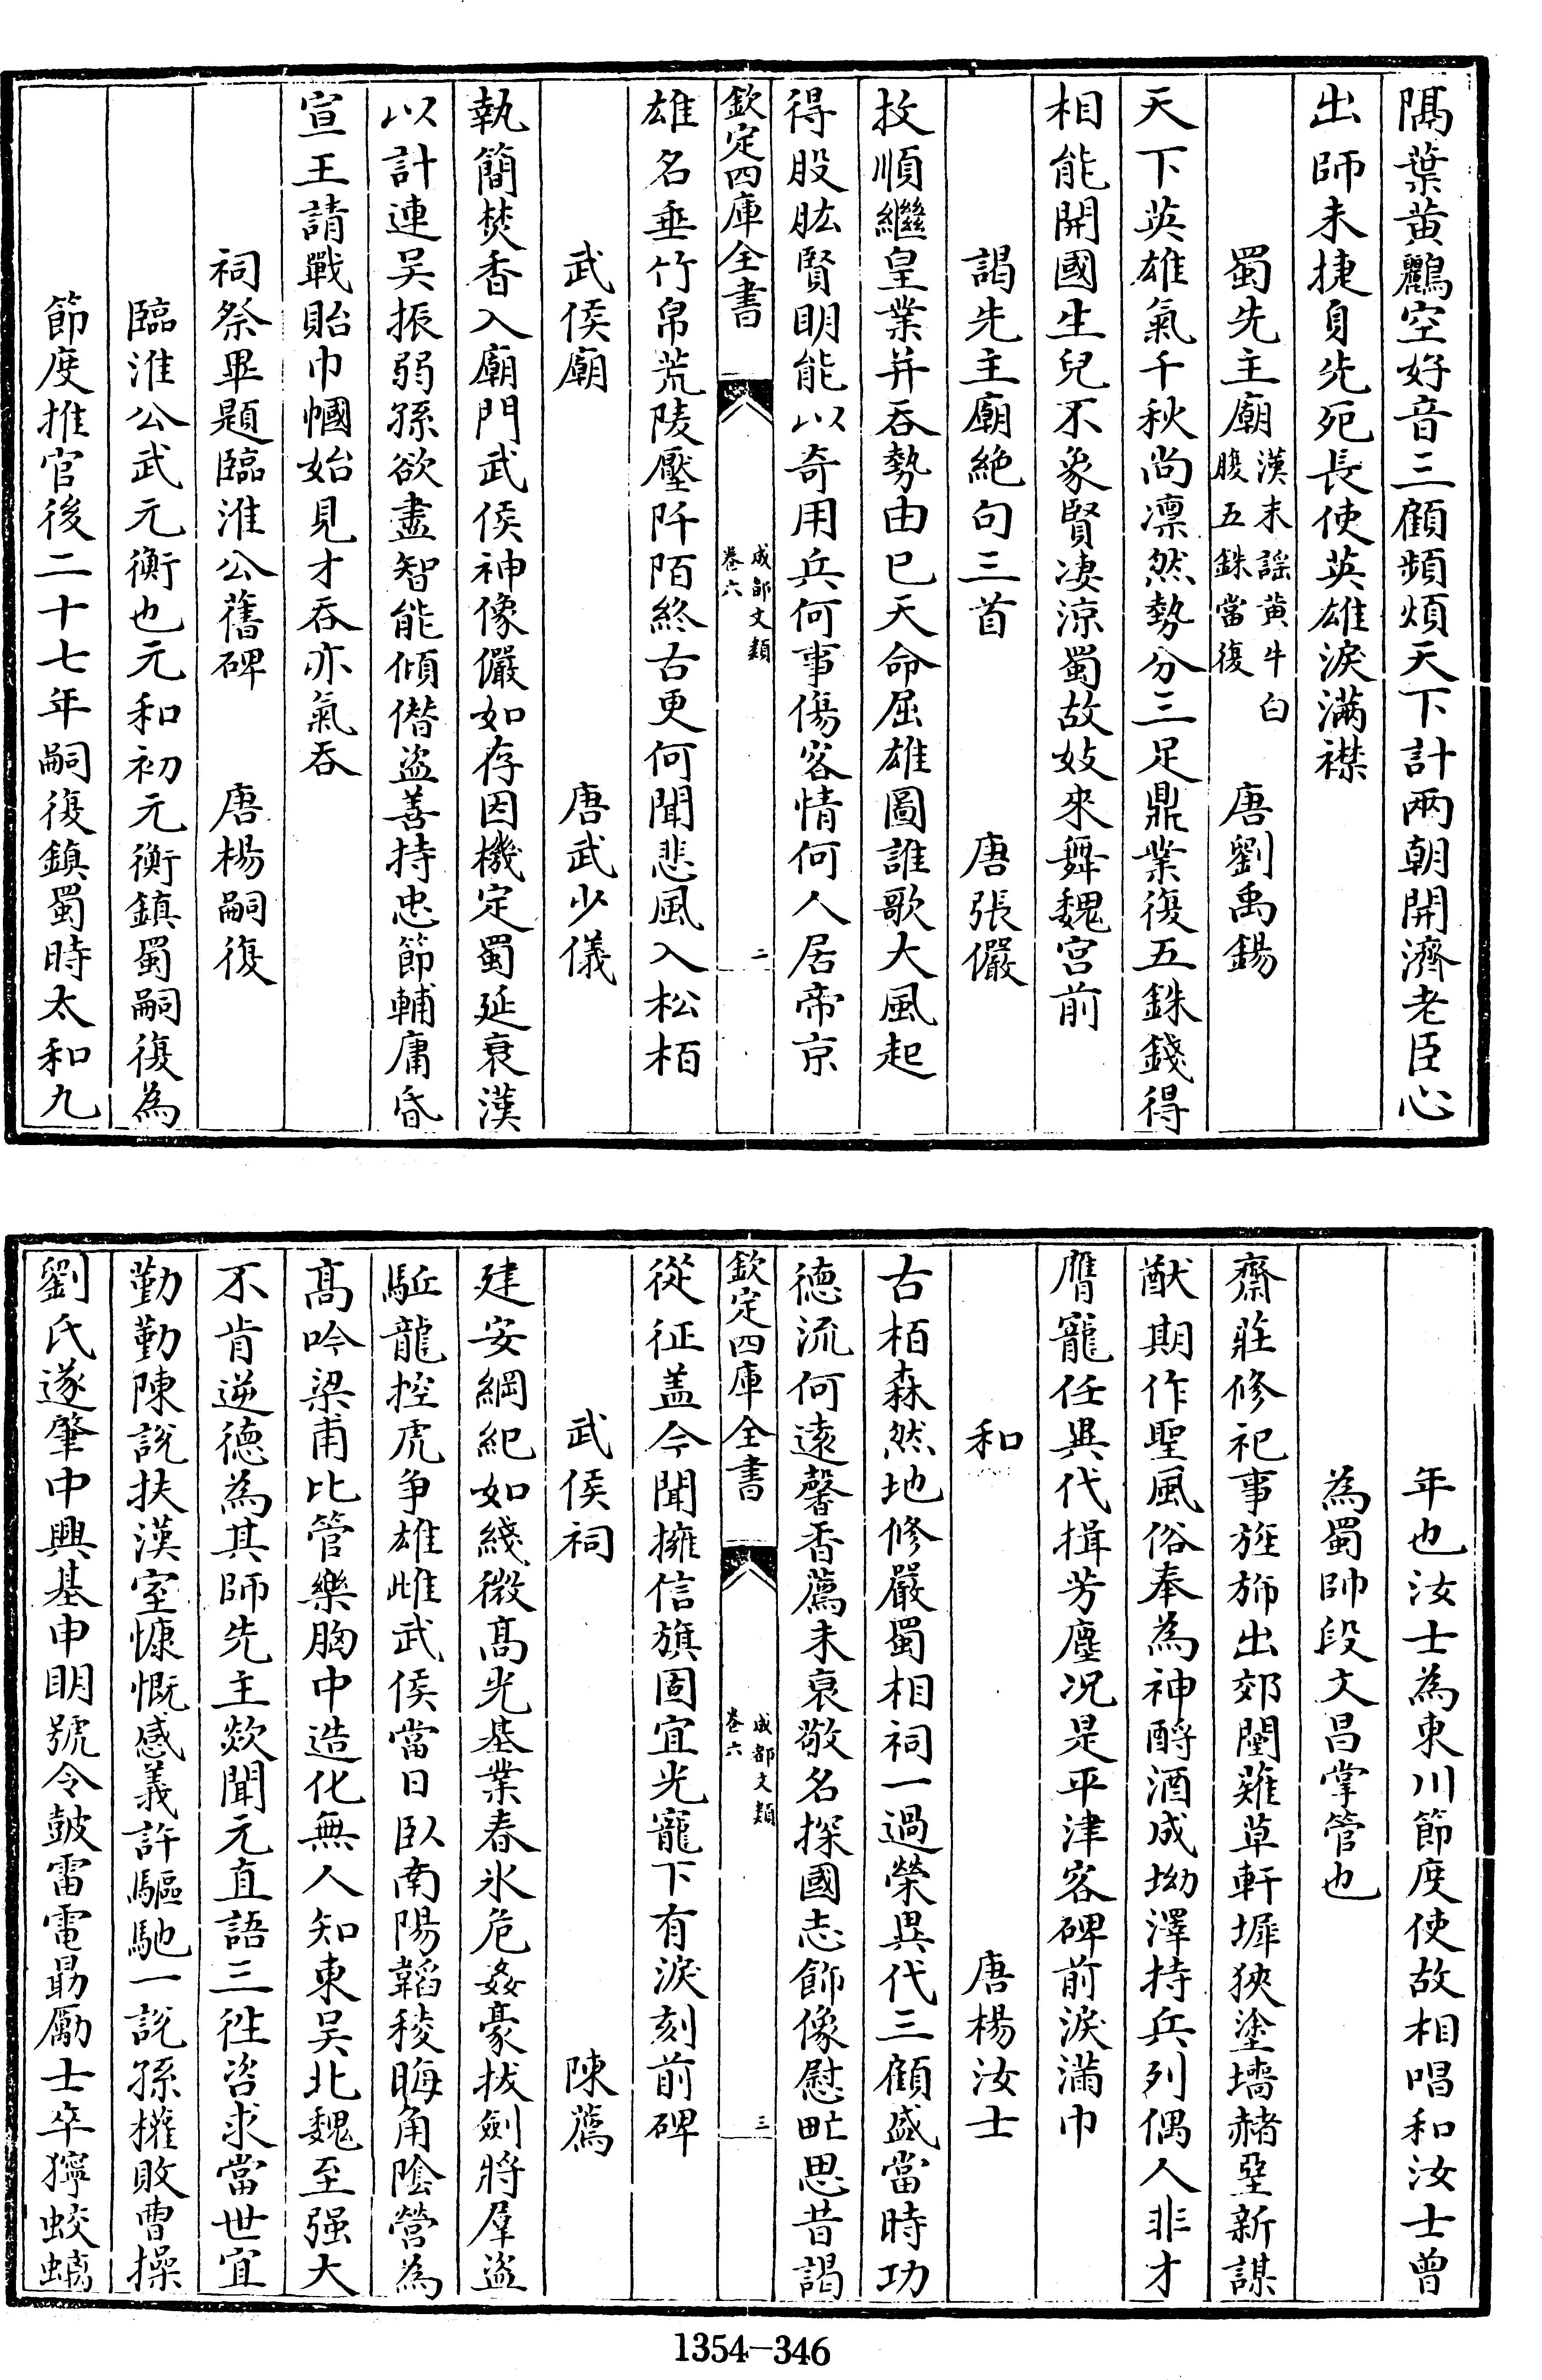 隔葉黄鸝空好音三顧頻煩天下計兩朝開濟老臣心
出師未捷身先死長使英雄淚滿襟
蜀先主廟漢末謡黄牛白腹五銖當復 唐劉禹錫
天下英雄氣千秋尚凛然勢分三足鼎業復五銖錢得
相能開國生兒不象賢凄涼蜀故妓來舞魏宫前
謁先主廟絶句三首 唐張儼
抆順繼皇業并吞勢由已天命屈雄圖誰歌大風起
得股肱賢明能以奇用兵何事傷客情何人居帝京
欽定四庫全書 成都文類 卷六 二
雄名垂竹帛荒陵壓阡陌終古更何聞悲風入松栢
武侯廟 唐武少儀
執簡焚香入廟門武侯神像儼如存因機定蜀延衰漢
以計連吴振弱孫欲盡智能傾僭盗善持忠節輔庸昏
宣王請戰貽巾幗始見才吞亦氣吞
祠祭畢題臨淮公舊碑 唐楊嗣復
臨淮公武元衡也元和初元衡鎮蜀嗣復為
節度推官後二十七年嗣復鎮蜀時太和九
年也汝士為東川節度使故相唱和汝士曾
為蜀帥段文昌掌管也
齋莊修祀事旌斾出郊闉薙草軒墀狹塗墻赭堊新謀
猷期作聖風俗奉為神酹酒成坳澤持兵列偶人非才
膺寵任異代揖芳塵况是平津客碑前淚滿巾
和 唐楊汝士
古栢森然地修嚴蜀相祠一過榮異代三顧盛當時功
德流何遠馨香薦未衰敬名探國志飾像慰甿思昔謁
欽定四庫全書 成都文類 卷六 三
從征盖今聞擁信旗固宜光寵下有淚刻前碑
武侯祠 陳薦
建安綱紀如綫微髙光基業春氷危姦豪拔劍將羣盗
駈龍控虎争雄雌武侯當日卧南陽韜稜晦角陰營為
髙吟梁甫比管樂胸中造化無人知東吴北魏至强大
不肯逆德為其師先主欻聞元直語三徃咨求當世宜
勤勤陳說扶漢室慷慨感義許驅馳一說孫權敗曹操
劉氏遂肇中興基申明號令鼓雷電勗勵士卒獰蛟螭
1354-346